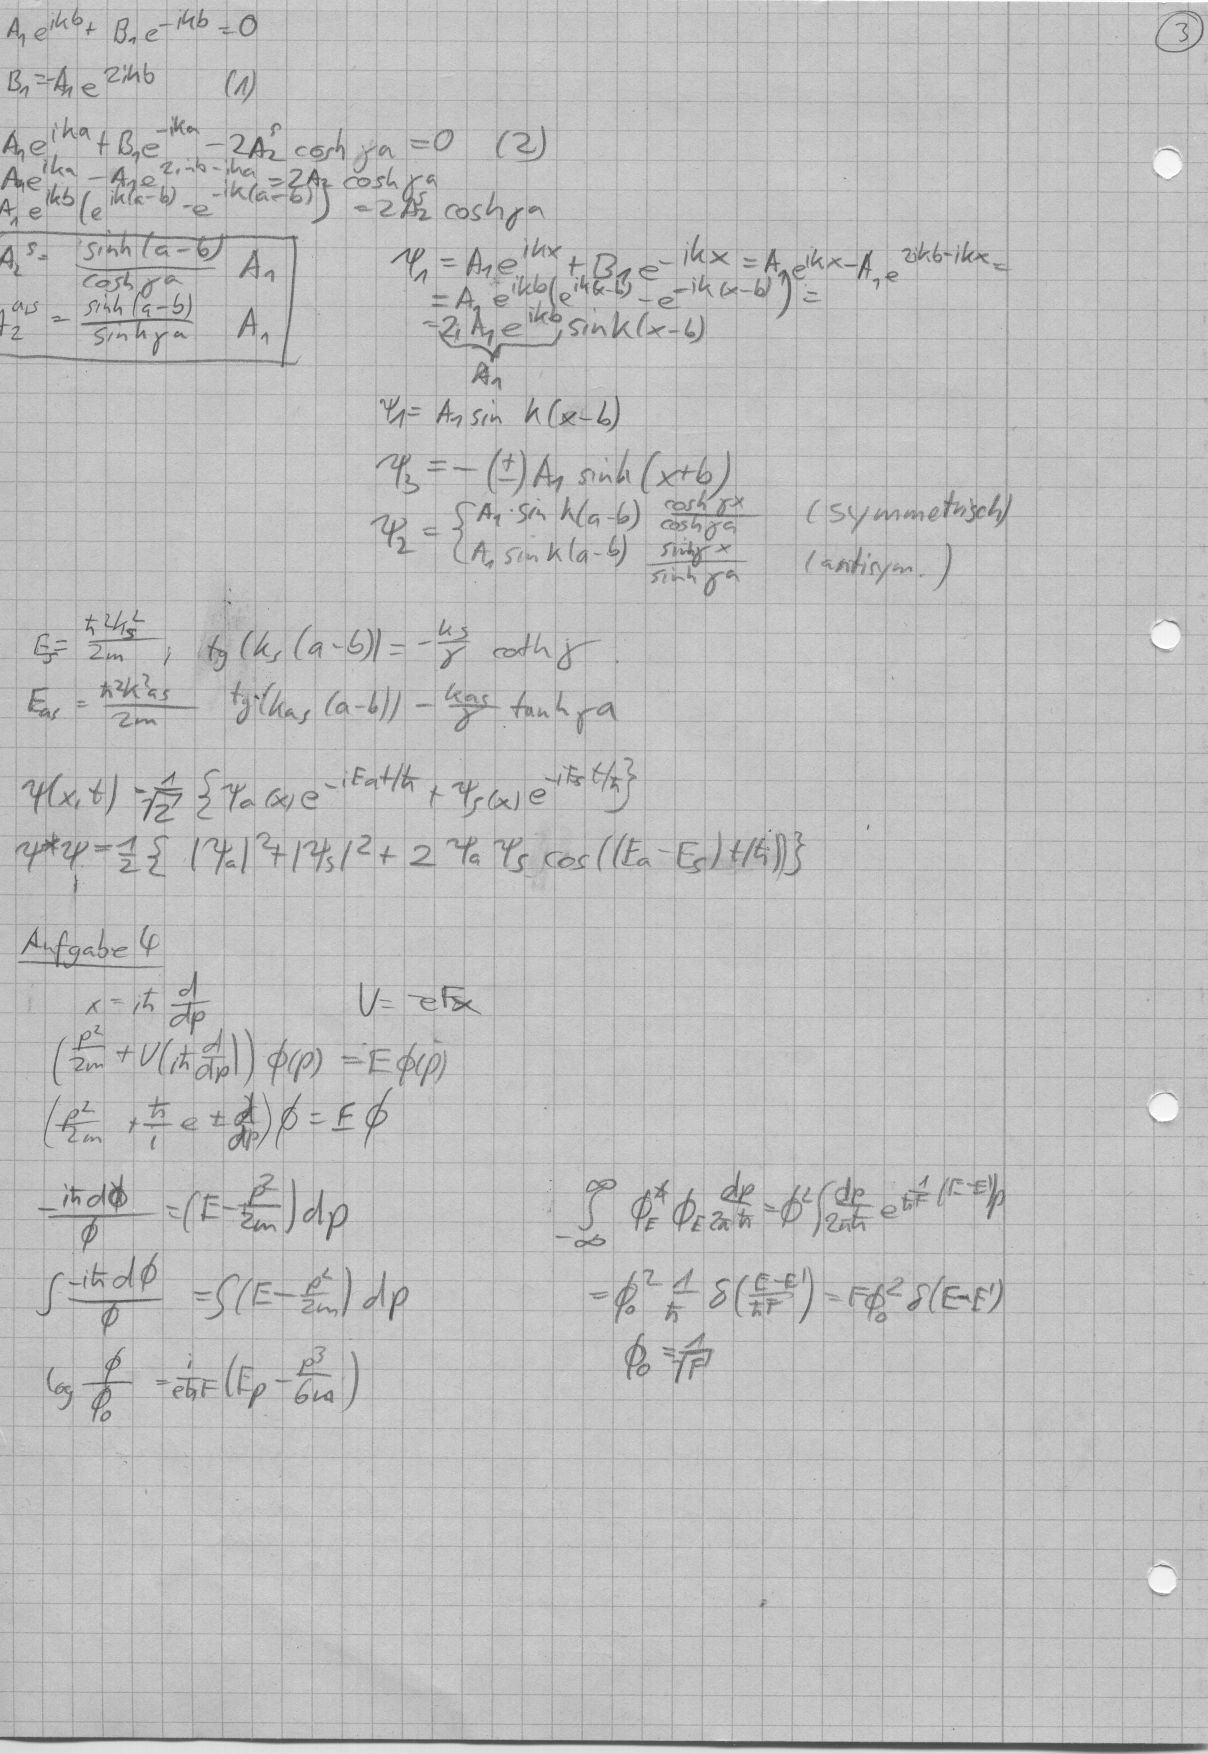 3
A₁e^{ikb} + B₁e^{-ikb} = 0
B₁ = -A₁e^{2ikb} (1)
A₁e^{ika} + B₁e^{-ika} - 2A₂^s cosh γa = 0 (2)
A₁e^{ika} - A₁e^{2ikb-ika} = 2A₂ cosh γa
A₁e^{ikb}(e^{ik(a-b)} - e^{-ik(a-b)}) = 2A₂^s cosh γa
A₂^s = \frac{sin k(a-b)}{cosh γa} A₁
A₂^{as} = \frac{sin k(a-b)}{sinh γa} A₁
ψ₁ = A₁e^{ikx} + B₁e^{-ikx} = A₁e^{ikx} - A₁e^{2ikb-ikx} =
= A₁e^{ikb}(e^{ik(x-b)} - e^{-ik(x-b)}) =
= 2i A₁e^{ikb} sin k(x-b)
A₁
ψ₁ = A₁ sin k(x-b)
ψ₃ = -(±) A₁ sin k(x+b)
ψ₂ = { A₁ · sin k(a-b) \frac{cosh γx}{cosh γa} (symmetrisch)
A₁ sin k(a-b) \frac{sinh γx}{sinh γa} (antisym.)
E_s = \frac{ħ²k_s²}{2m} ; tg(k_s(a-b)) = -\frac{k_s}{γ} coth γ
E_{as} = \frac{ħ²k²_{as}}{2m} tg(k_{as}(a-b)) - \frac{k_{as}}{γ} tanh γa
ψ(x,t) = \frac{1}{√2} {ψ_a(x)e^{-iE_at/ħ} + ψ_s(x)e^{-iE_st/ħ}}
ψ*ψ = \frac{1}{2} { |ψ_a|² + |ψ_s|² + 2 ψ_a ψ_s cos((E_a-E_s)t/ħ)}
Aufgabe 4
x = iħ \frac{d}{dp} U = -eFx
(\frac{p²}{2m} + U(iħ\frac{d}{dp})) ϕ(p) = E ϕ(p)
(\frac{p²}{2m} + \frac{ħ}{i} e F \frac{d}{dp}) ϕ = E ϕ
\frac{-iħ dϕ}{ϕ} = (E - \frac{p²}{2m}) dp
∫ \frac{-iħ dϕ}{ϕ} = ∫(E - \frac{p²}{2m}) dp
log \frac{ϕ}{ϕ₀} = \frac{i}{eħF} (Ep - \frac{p³}{6m})
∫_{-∞}^{∞} ϕ_E^* ϕ_E \frac{dp}{2πħ} = ϕ² ∫ \frac{dp}{2πħ} e^{\frac{1}{ħF}(E-E')p}
= ϕ₀² \frac{1}{ħ} δ(\frac{E-E'}{ħF}) = Fϕ₀² δ(E-E')
ϕ₀ = \frac{1}{√F}